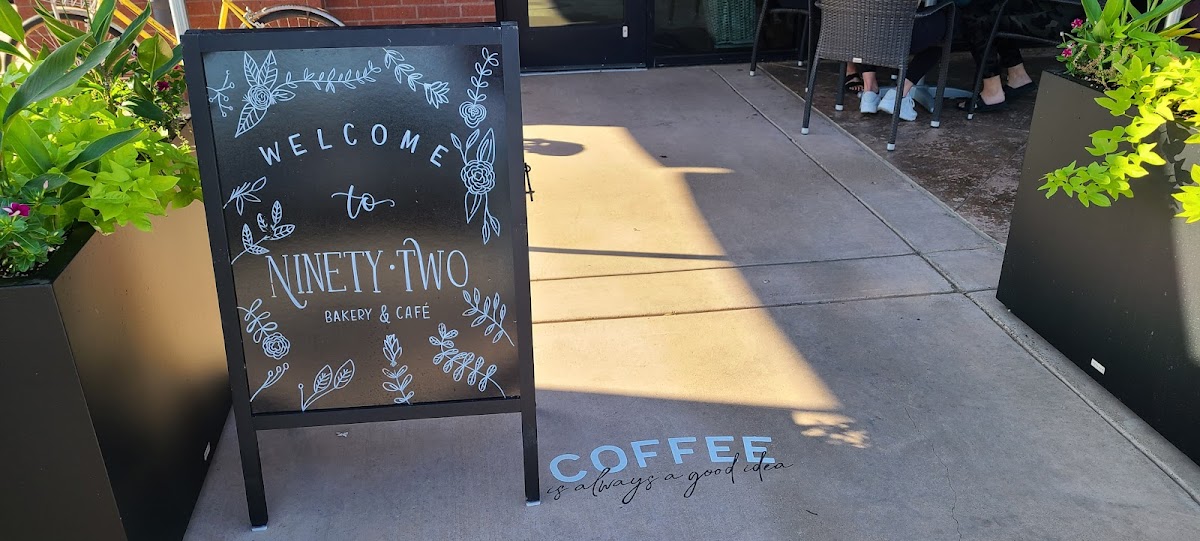 WELCOME
to
NINETY·TWO
BAKERY & CAFÉ
COFFEE
is always a good idea